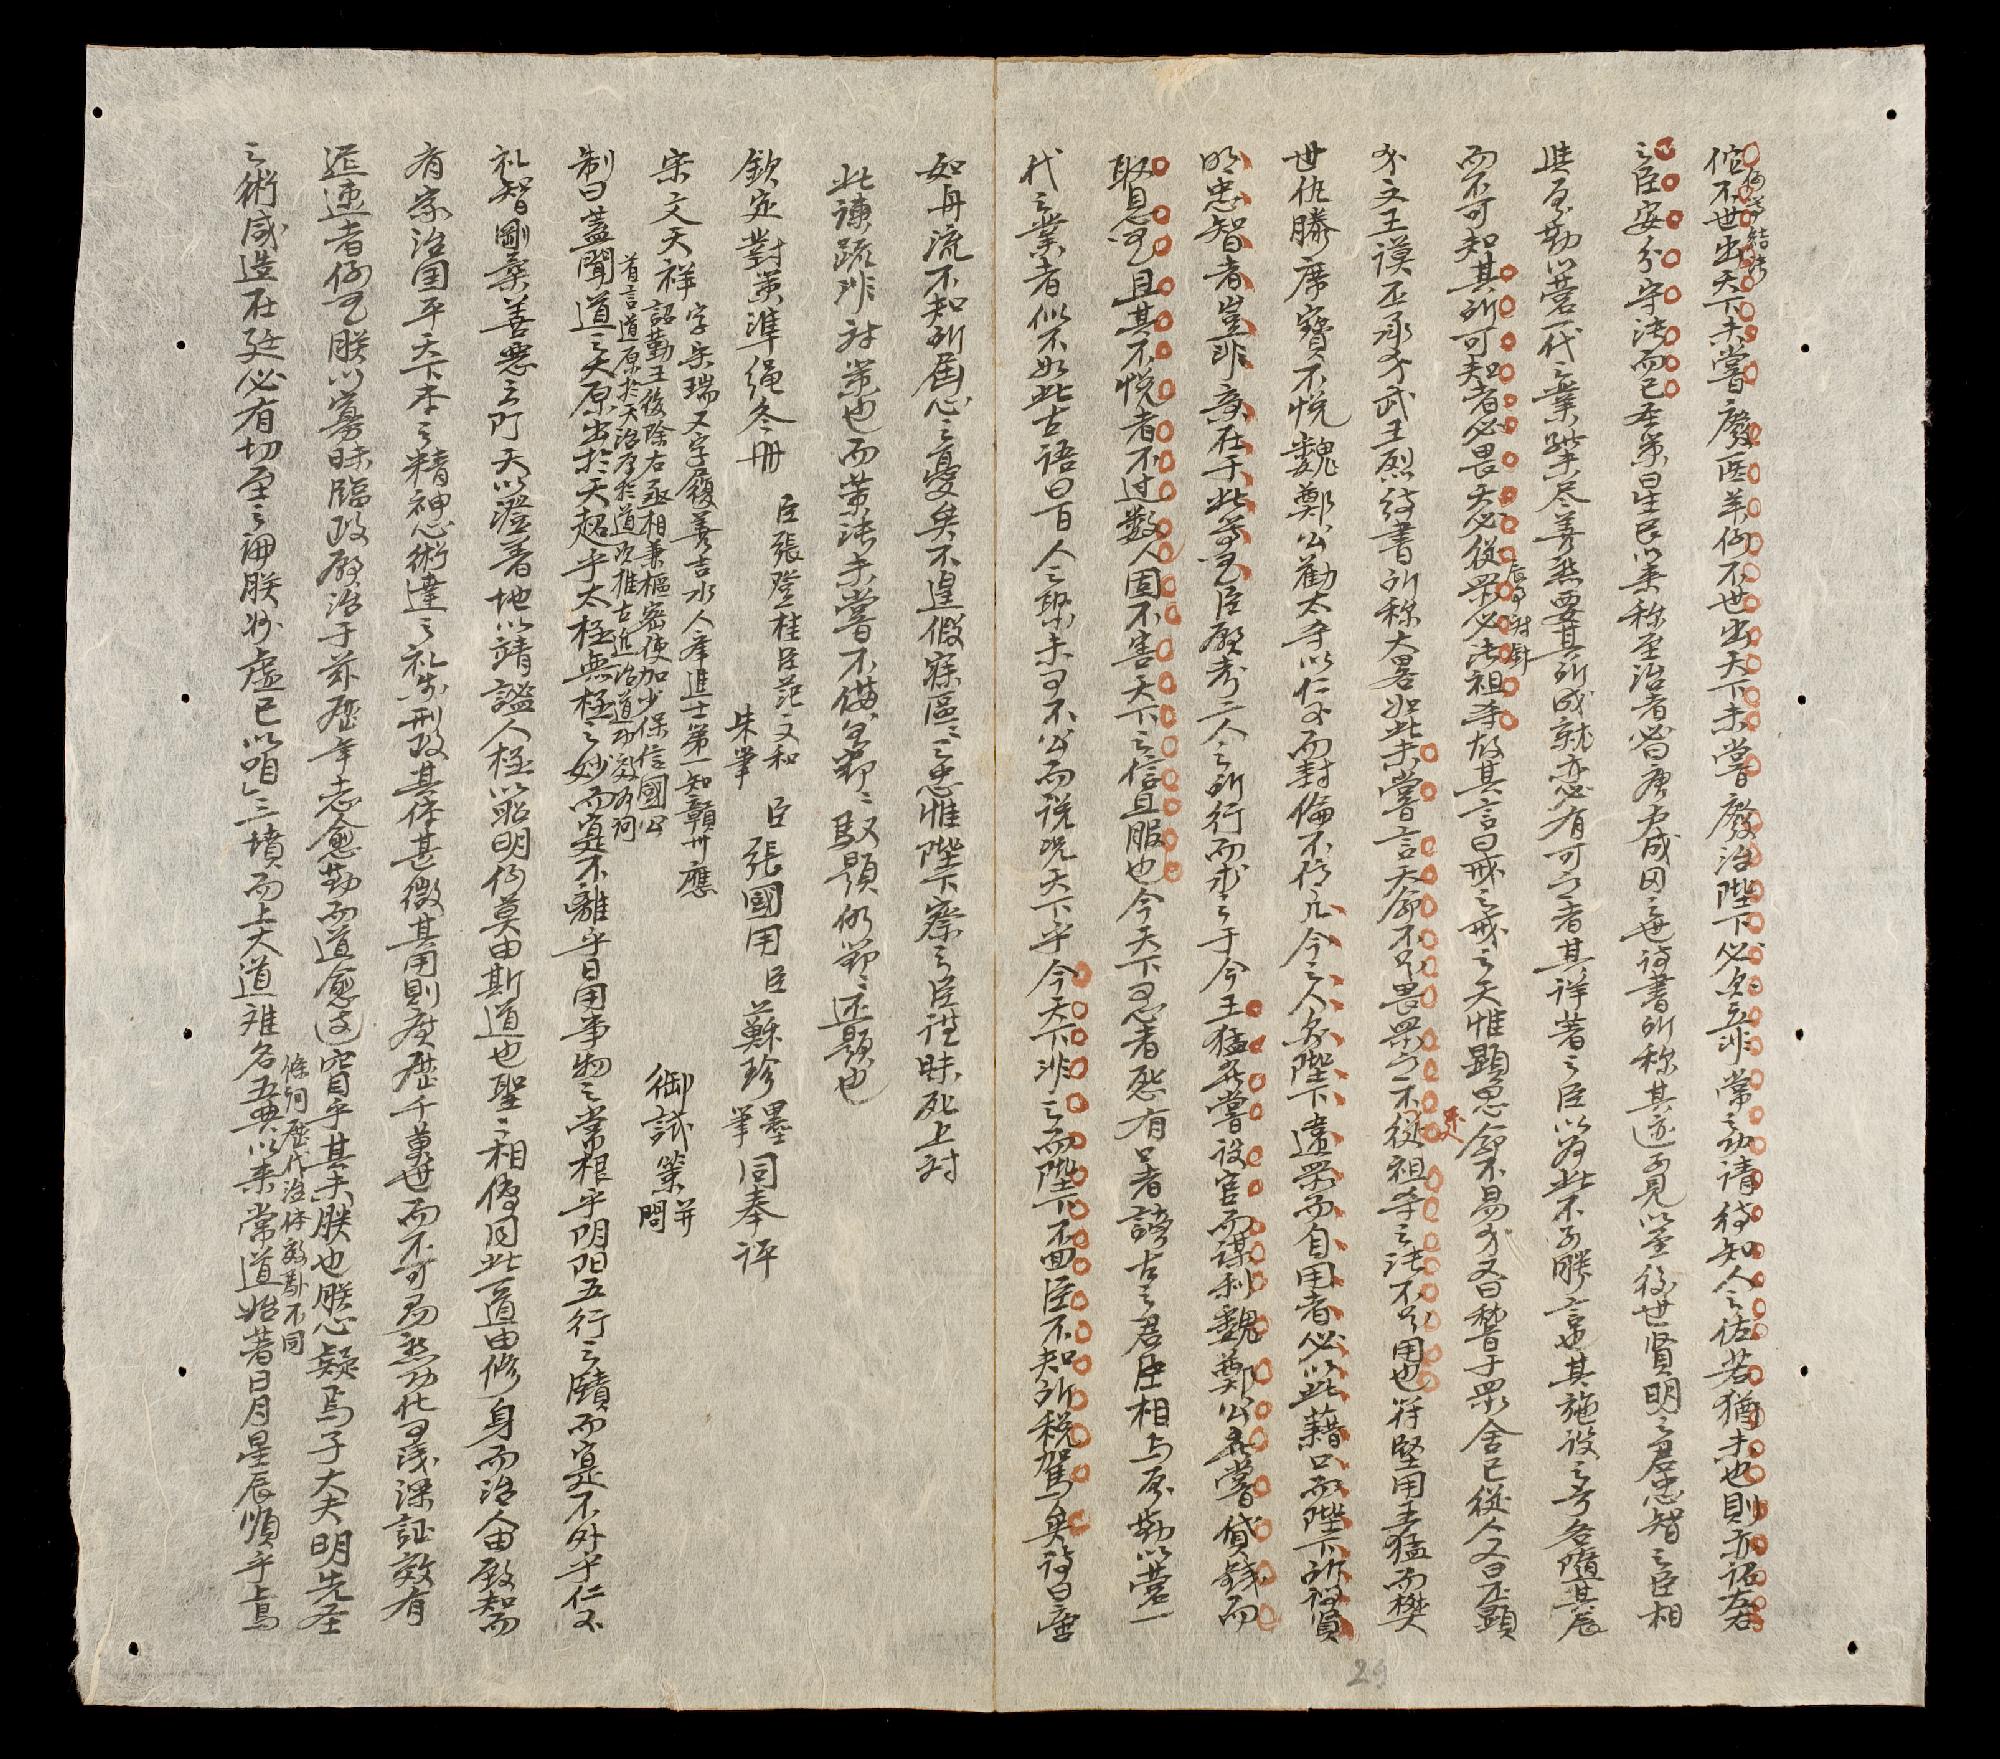 佗不世出天下未嘗廢医羊何不世出天下未嘗廢治陛下必欲立非常之功請待知人之佐若猶未也則亦詔左右
之臣安分守法而已圣策曰生民以来称至治者必曰唐虞成周之世詩書所称其迹可見以至後世賢明之君忠智之臣相
與憂勤以營一代之業雖未尽善然要其所成就亦必有可言者其詳著之臣以為此不可勝言也其施設之方各隨其辰
而不可知其所可知者必畏天必從眾必法祖宗故其言曰戒之戒之天惟顯思命不易才又曰稽于眾舍己從人又曰丕顯
才文王謨丕承才武王烈詩書所称大畧如此未嘗言天命不足畏眾言不足從祖宗之法不足用也苻堅用王猛而樊
世仇滕席寶不悅魏鄭公勸太宗以仁义而封倫不信凡今之人欲陛下違眾而自用者必以此藉口而陛下所謂賢
明忠智者豈非意在于此等乎臣願考二人之所行而求之于今王猛豈嘗設官而謀利魏鄭公豈嘗貸錢而
取息乎且其不悅者不过數人固不害天下之信且服也今天下有心者怒有口者謗古之君臣相与憂勤以營一
代之業者似不如此古語曰百人之聚未有不公而況天下乎今天下非之而陛下不回臣不知所稅駕矣詩曰譬
如舟流不知所屆心之憂矣不遑假寐區〻之忠惟陛下察之臣謹昧死上对
此諫疏非对策也而策法未嘗不備
欽定對策準绳冬冊 臣張登桂臣范文和 朱筆 臣張國用 臣蘇珍 墨筆同奉评
宋文天祥 字宋瑞又字履善吉水人年進士第一知贛州應
詔勤王後除右丞相兼樞密使加少保信國公 御試策并問
首言道原於天治原於道次推古迄治道功效為问
制曰蓋聞道之大原出於天超乎太極無極之妙而寔不離乎日用事物之常根乎阴阳五行之賾而寔不外乎仁义
礼智剛柔善惡之际天以澄著地以靖謐人極以昭明何莫由斯道也聖〻相傳同此一道由修身而治人由致知而
有家治国平天下本之精神心術達之礼乐刑政其体甚微其用則廣歷千萬世而不可易然功化有浅深証效有
遲速者何也朕以寡昧臨政願治于茲歷年志愈勤而道愈遠窅乎其未朕也朕心疑焉子大夫明先圣
條问歷代治体效驗不同
之術咸造在廷必有切至之論朕將虛己以咱三墳而上大道难名五典以来常道始著日月星辰順乎上鳥